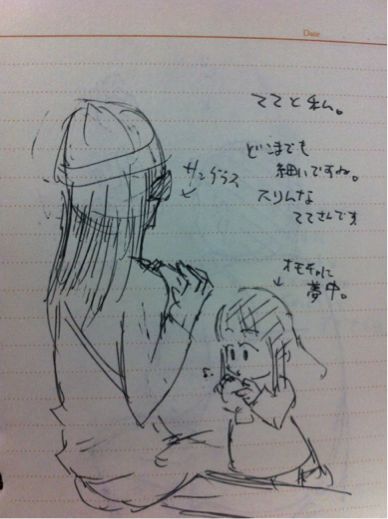 Date
ててと私。
どこまでも
細いですね。
スリムな
ててさんです
サングラス
オモチャに
夢中。